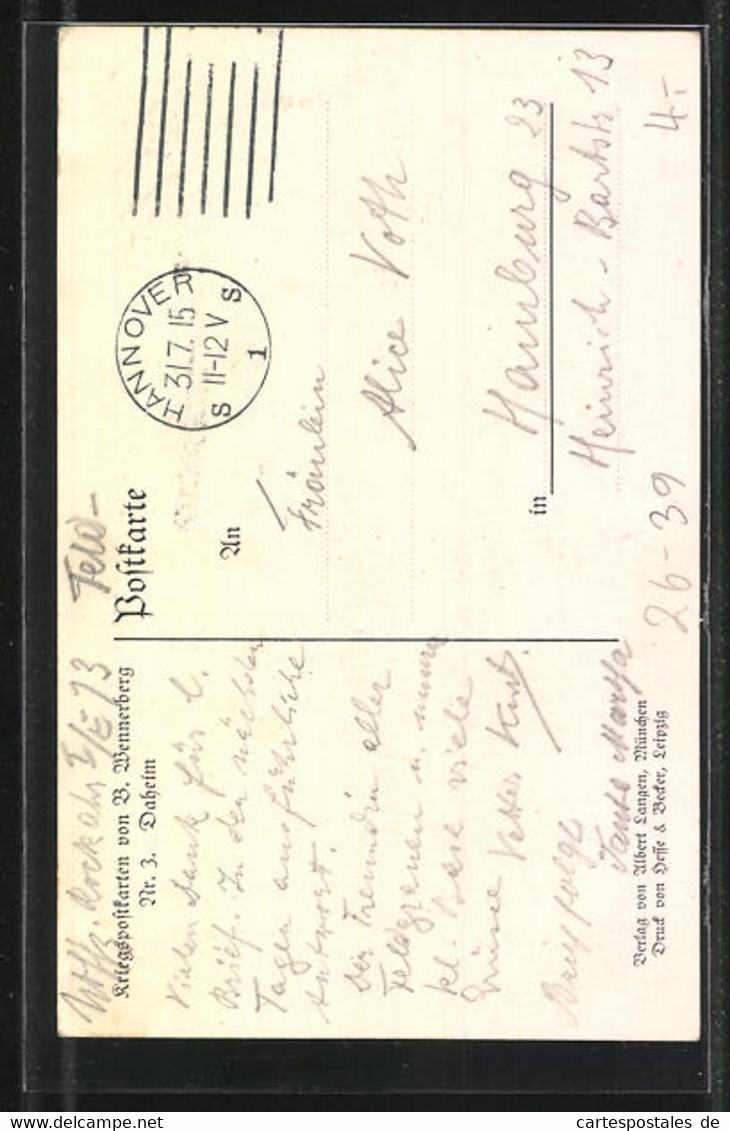 Feld-
Postkarte
HANNOVER
31.7.15
S 11-12 V S
1
An
Fräulein
Alice Voth
in Hamburg 23
Heinrich-Bartstr 13
4.-
26-39
Kriegspostkarten von B. Wennerberg
Nr. 3. Daheim
Vielen Dank für l.
Brief. In den nächsten
Tagen ausführliche
Antwort.
Der Freundin aller
Feldgrauen u. unserer
kl. Base viele
Grüsse Vetter Kurt.
Brief folgt
Tante Martha
Verlag von Albert Langen, München
Druck von Hesse & Becker, Leipzig
cartespostales de